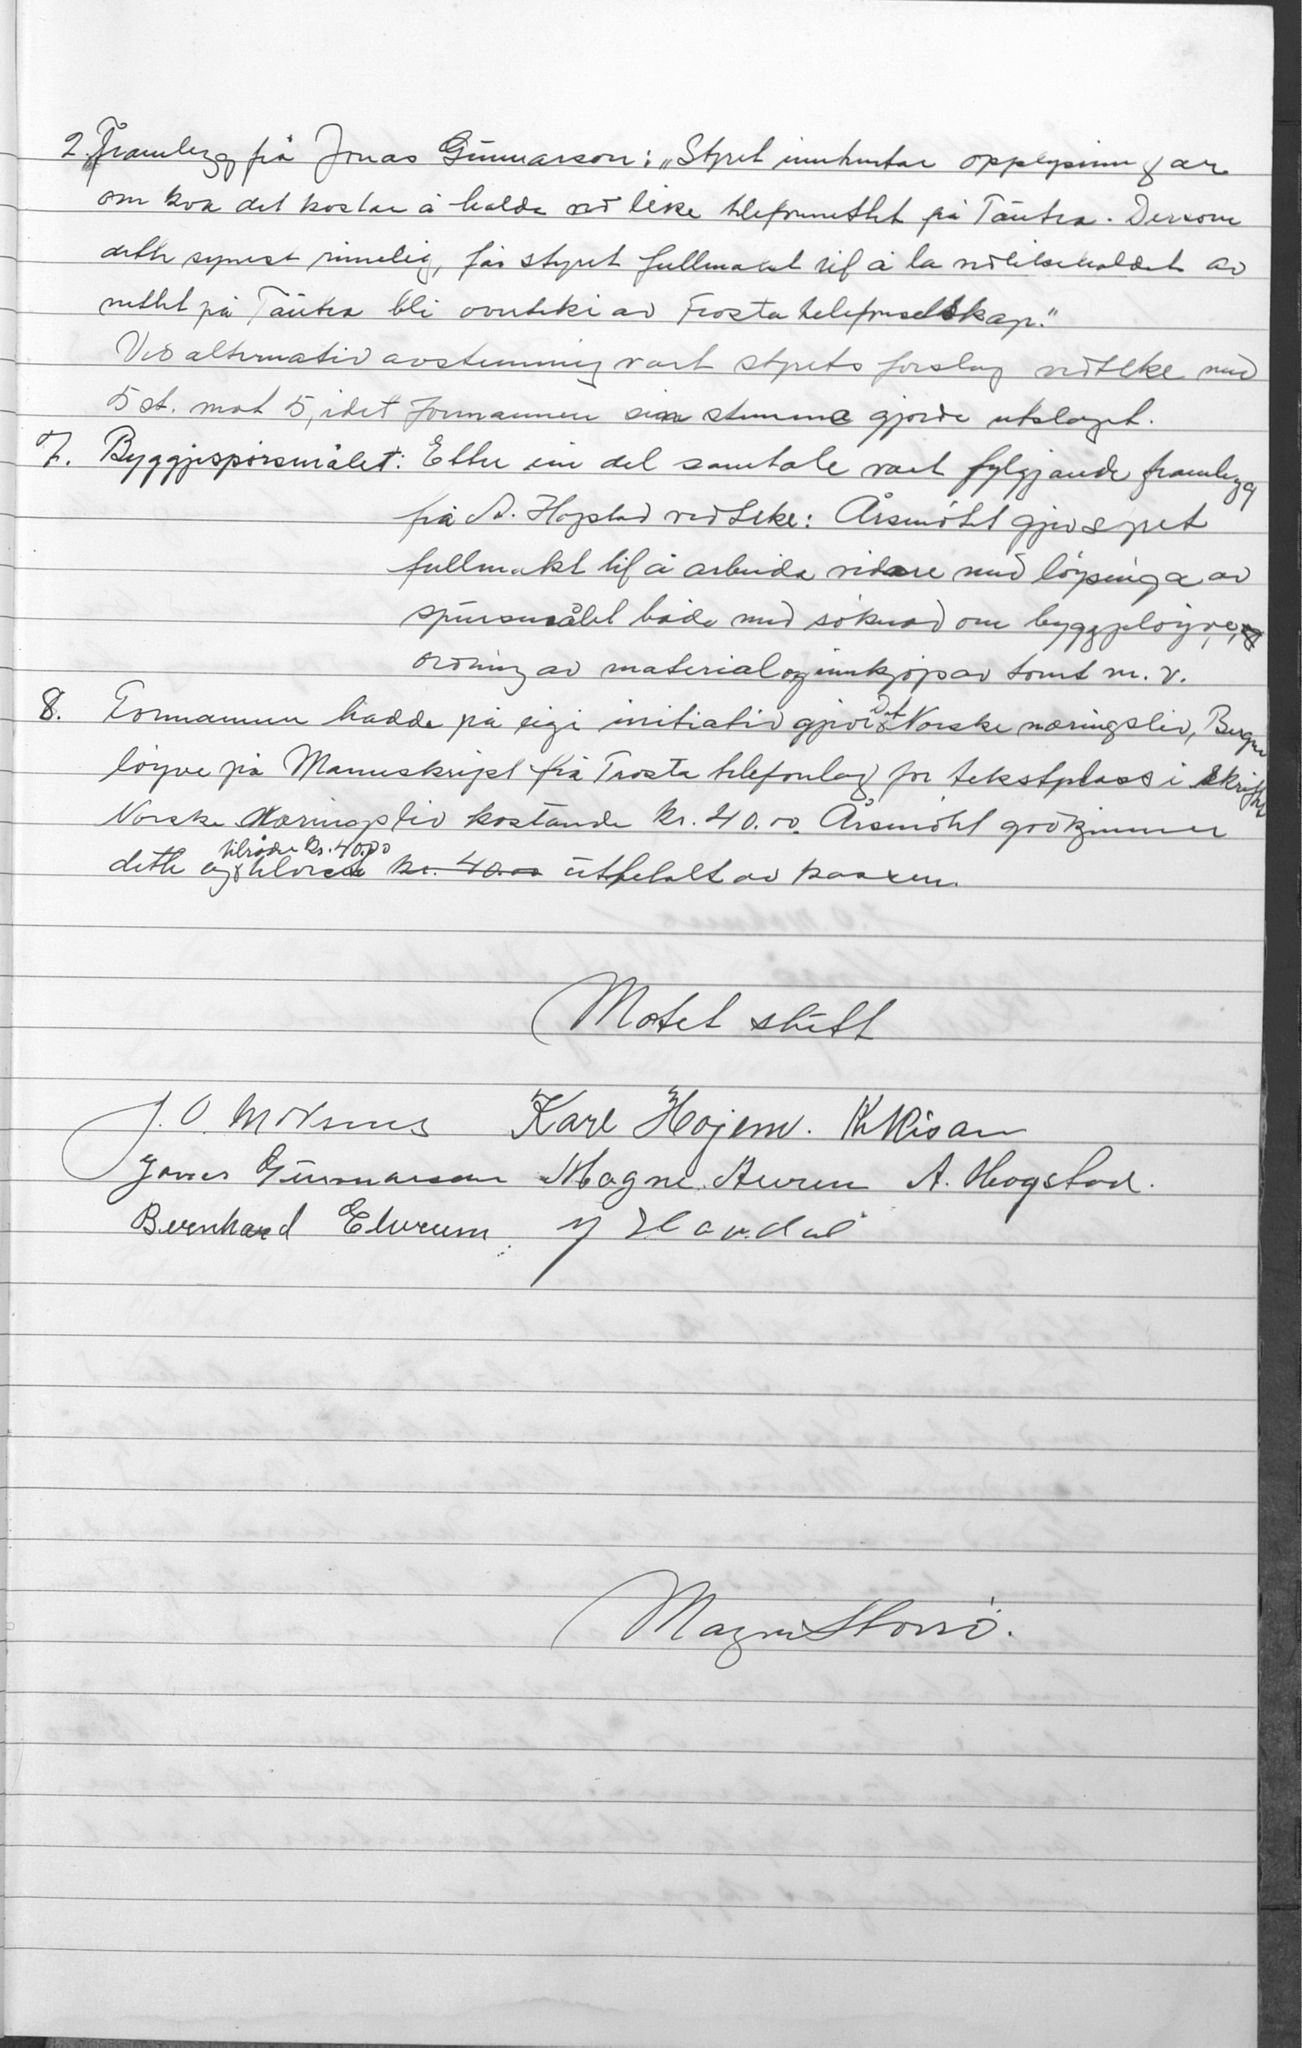 2. Framlegg frå Jonas Gunnarson: „Styret innhentar opplysningar
om kva det kostar å halda ved like telefonnettet på Tautra. Dersom
dette synest rimelig, får styret fullmakt til å la vedlikehaldet av
nettet på Tautra bli overteke av Frosta telefonselskap."
Ved alternativ avstemming vart styrets forslag vedteke med
5 st. mot 5, idet formannen sin stemme gjorde utslaget.
7. Byggjespørsmålet: Etter ein del samtale vart fylgjande framlegg
frå A. Hogstad vedteke: Årsmötet gjev styret
fullmakt til å arbeida vidare med löysinga av
spursmålet både med söknad om byggjeløyve,
ordning av material og innkjøp av tomt m. v.
8. Formannen hadde på eige initiativ gjeve Det Norske næringsliv, Bergen
löyve på Manuskript frå Frosta telefonlag for tekstplass i skriftet
Norske Næringsliv kostande kr. 40.00. Årsmötet godkjenner
dette og tilråder kr. 40.00 kr. 40.00 utbetalt av kassen.
Møtet slutt
J. O. Moksnes Karl Hojem. K Risan
Jonas Gunnarson Magne Auren A. Hogstad.
Bernhard Elvrum M Haudal
Magne Storrö.